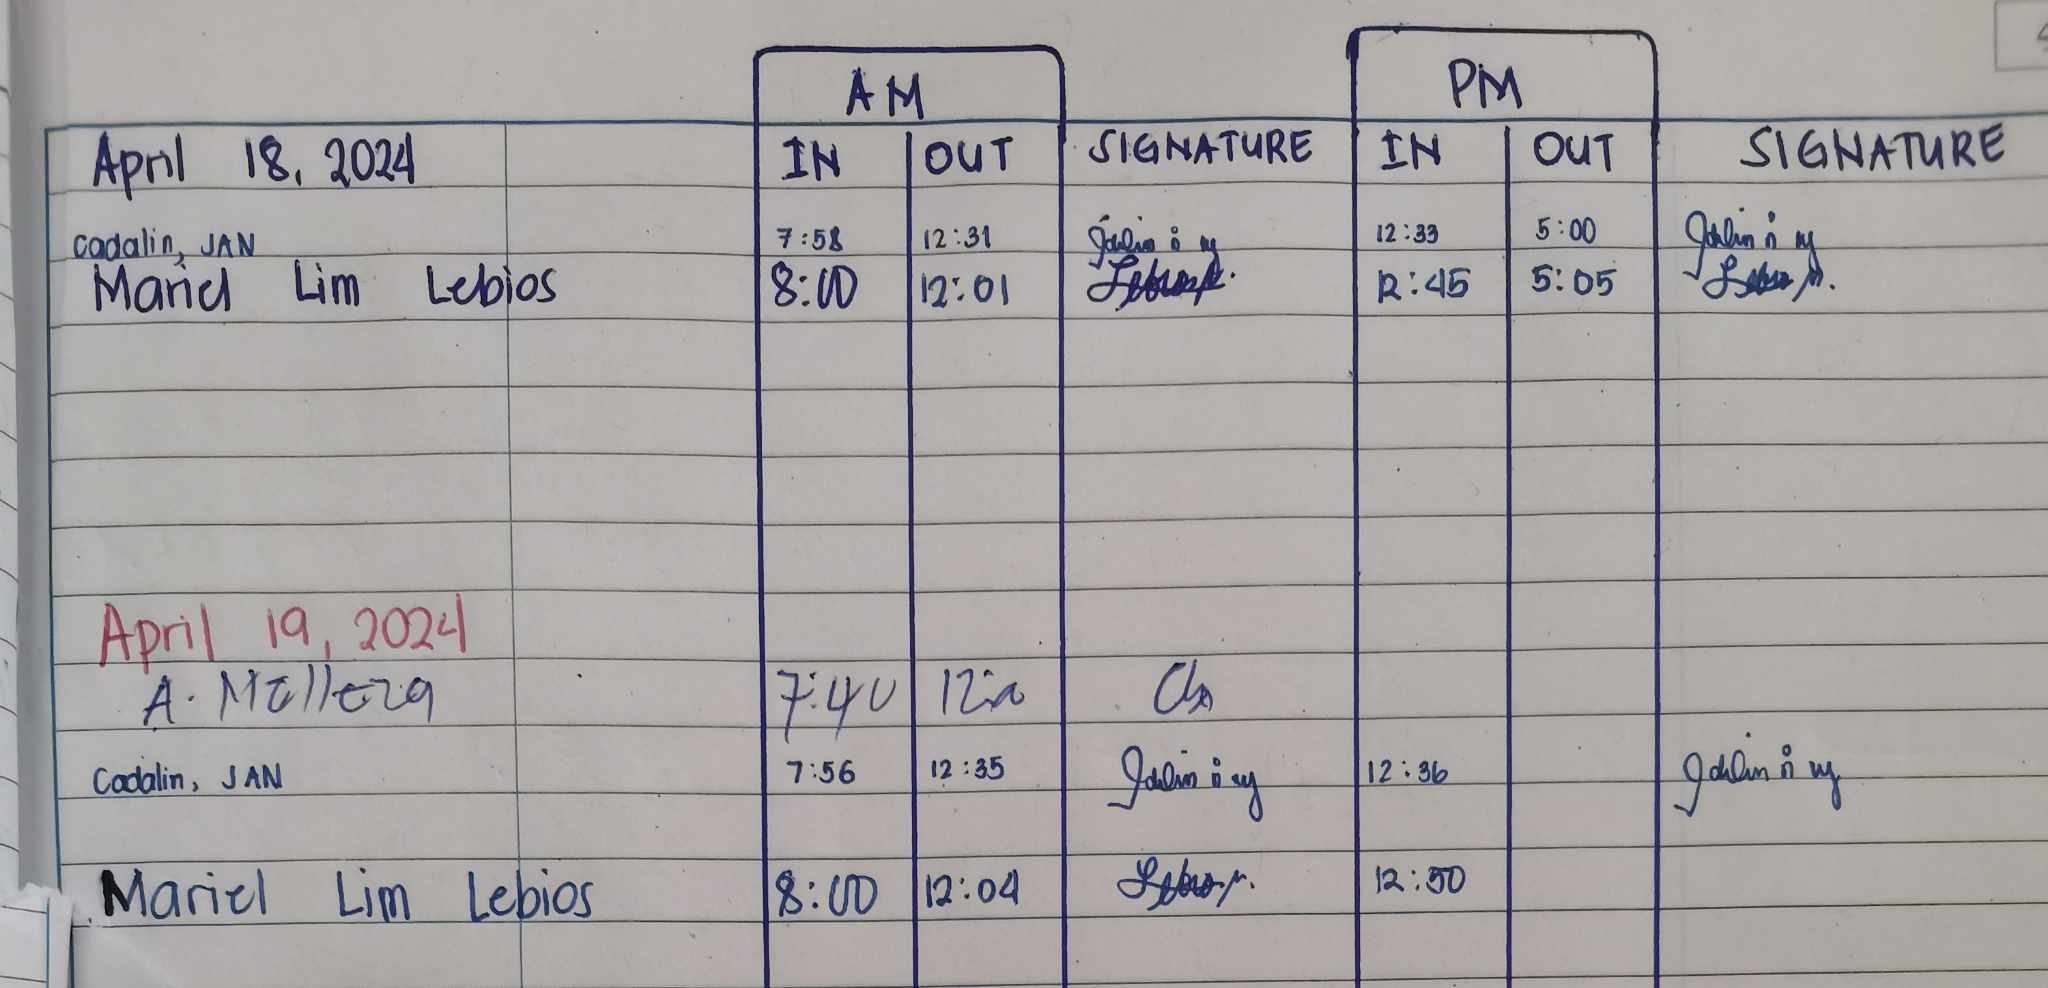 AM PM
April 18, 2024 IN OUT SIGNATURE IN OUT SIGNATURE
Cadalin, JAN 7:58 12:31 12:33 5:00
Mariel Lim Lebios 8:00 12:01 12:45 5:05
April 19, 2024
A. 7:40
Cadalin, JAN 7:56 12:35 12:36
Mariel Lim Lebios 8:00 12:04 12:50